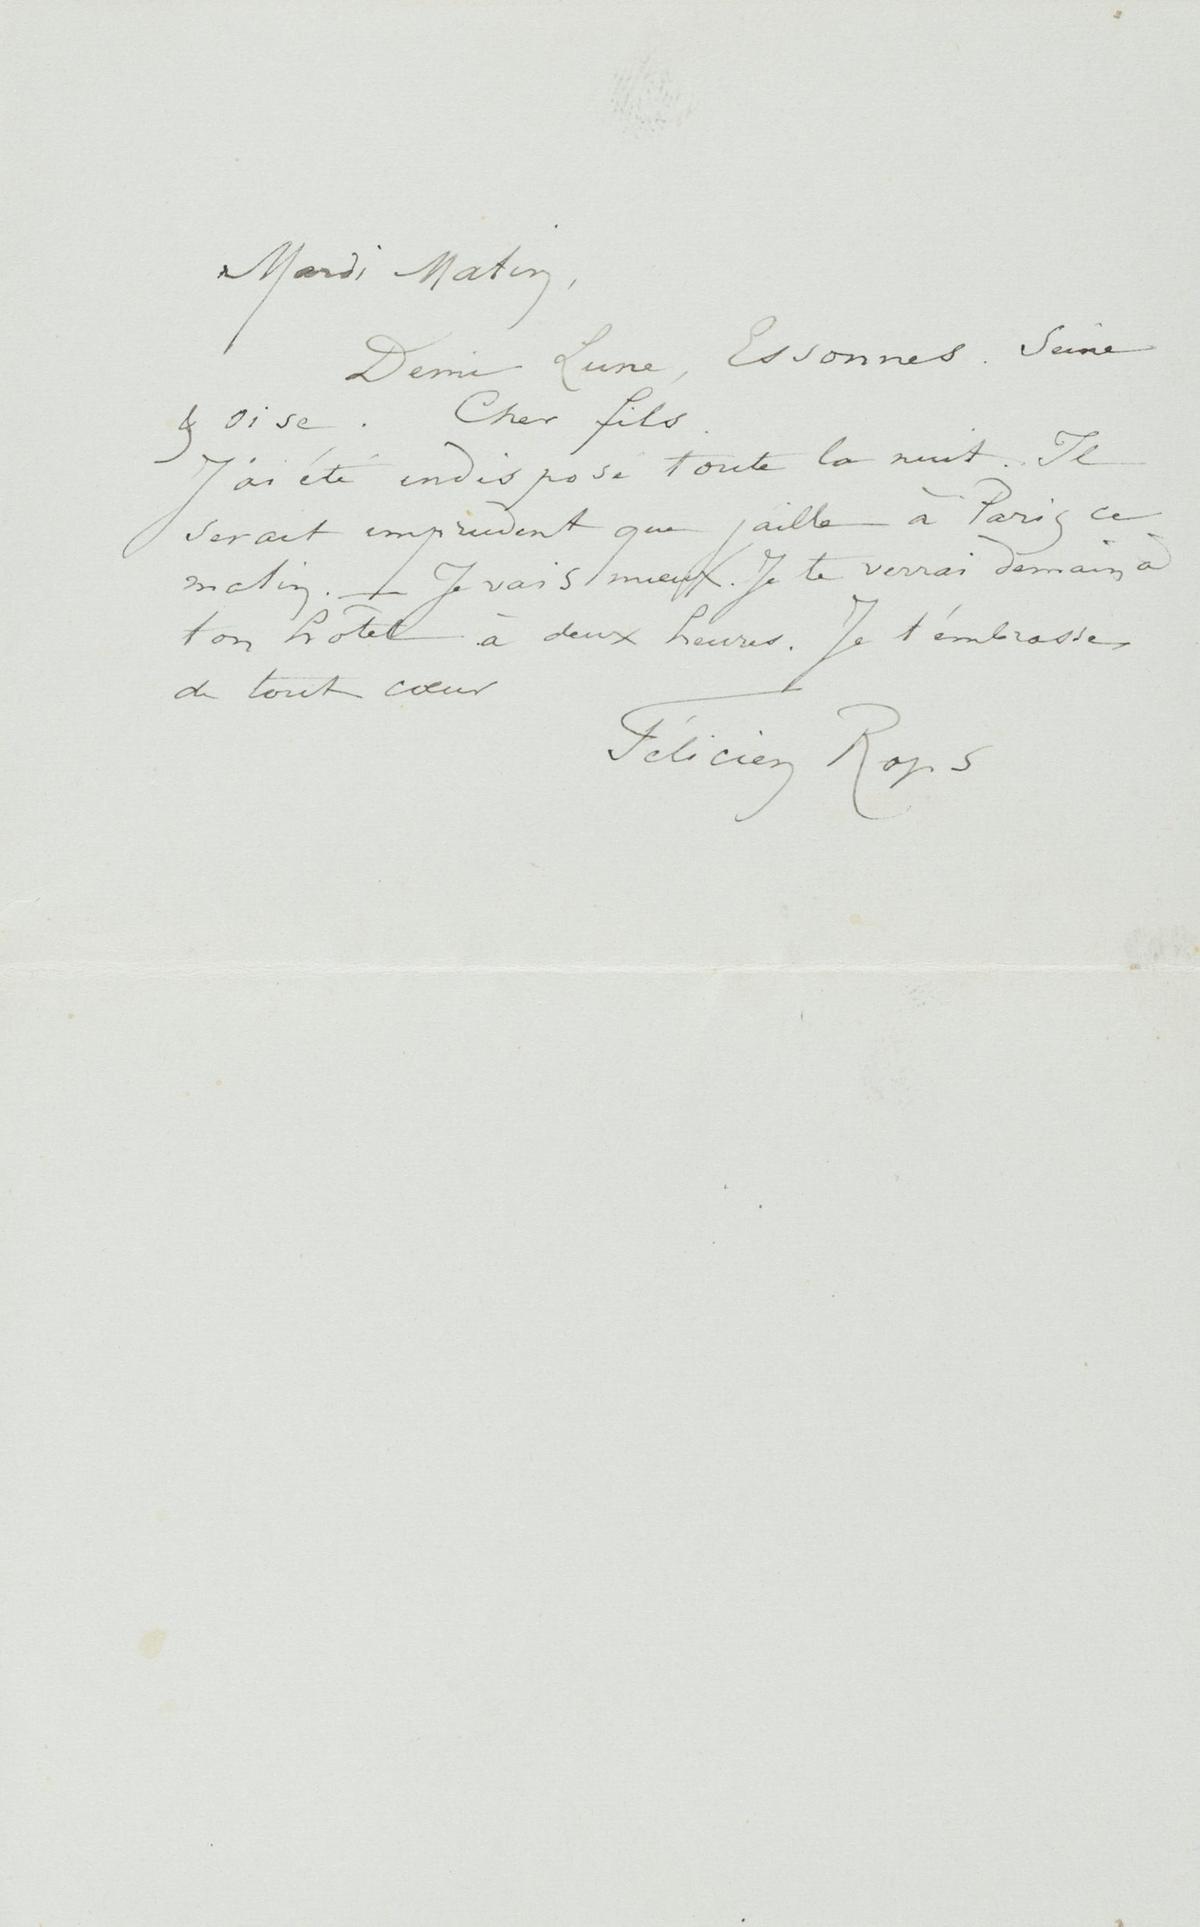 Mardi Matin,
Demi Lune, Essonnes. Seine
& oise. Cher fils.
J'ai été indisposé toute la nuit. Il
serait imprudent que j'aille à Paris ce
matin. — Je vais mieux. Je te verrai demain à
ton hôtel à deux heures. Je t'embrasse
de tout cœur
Félicien Rops